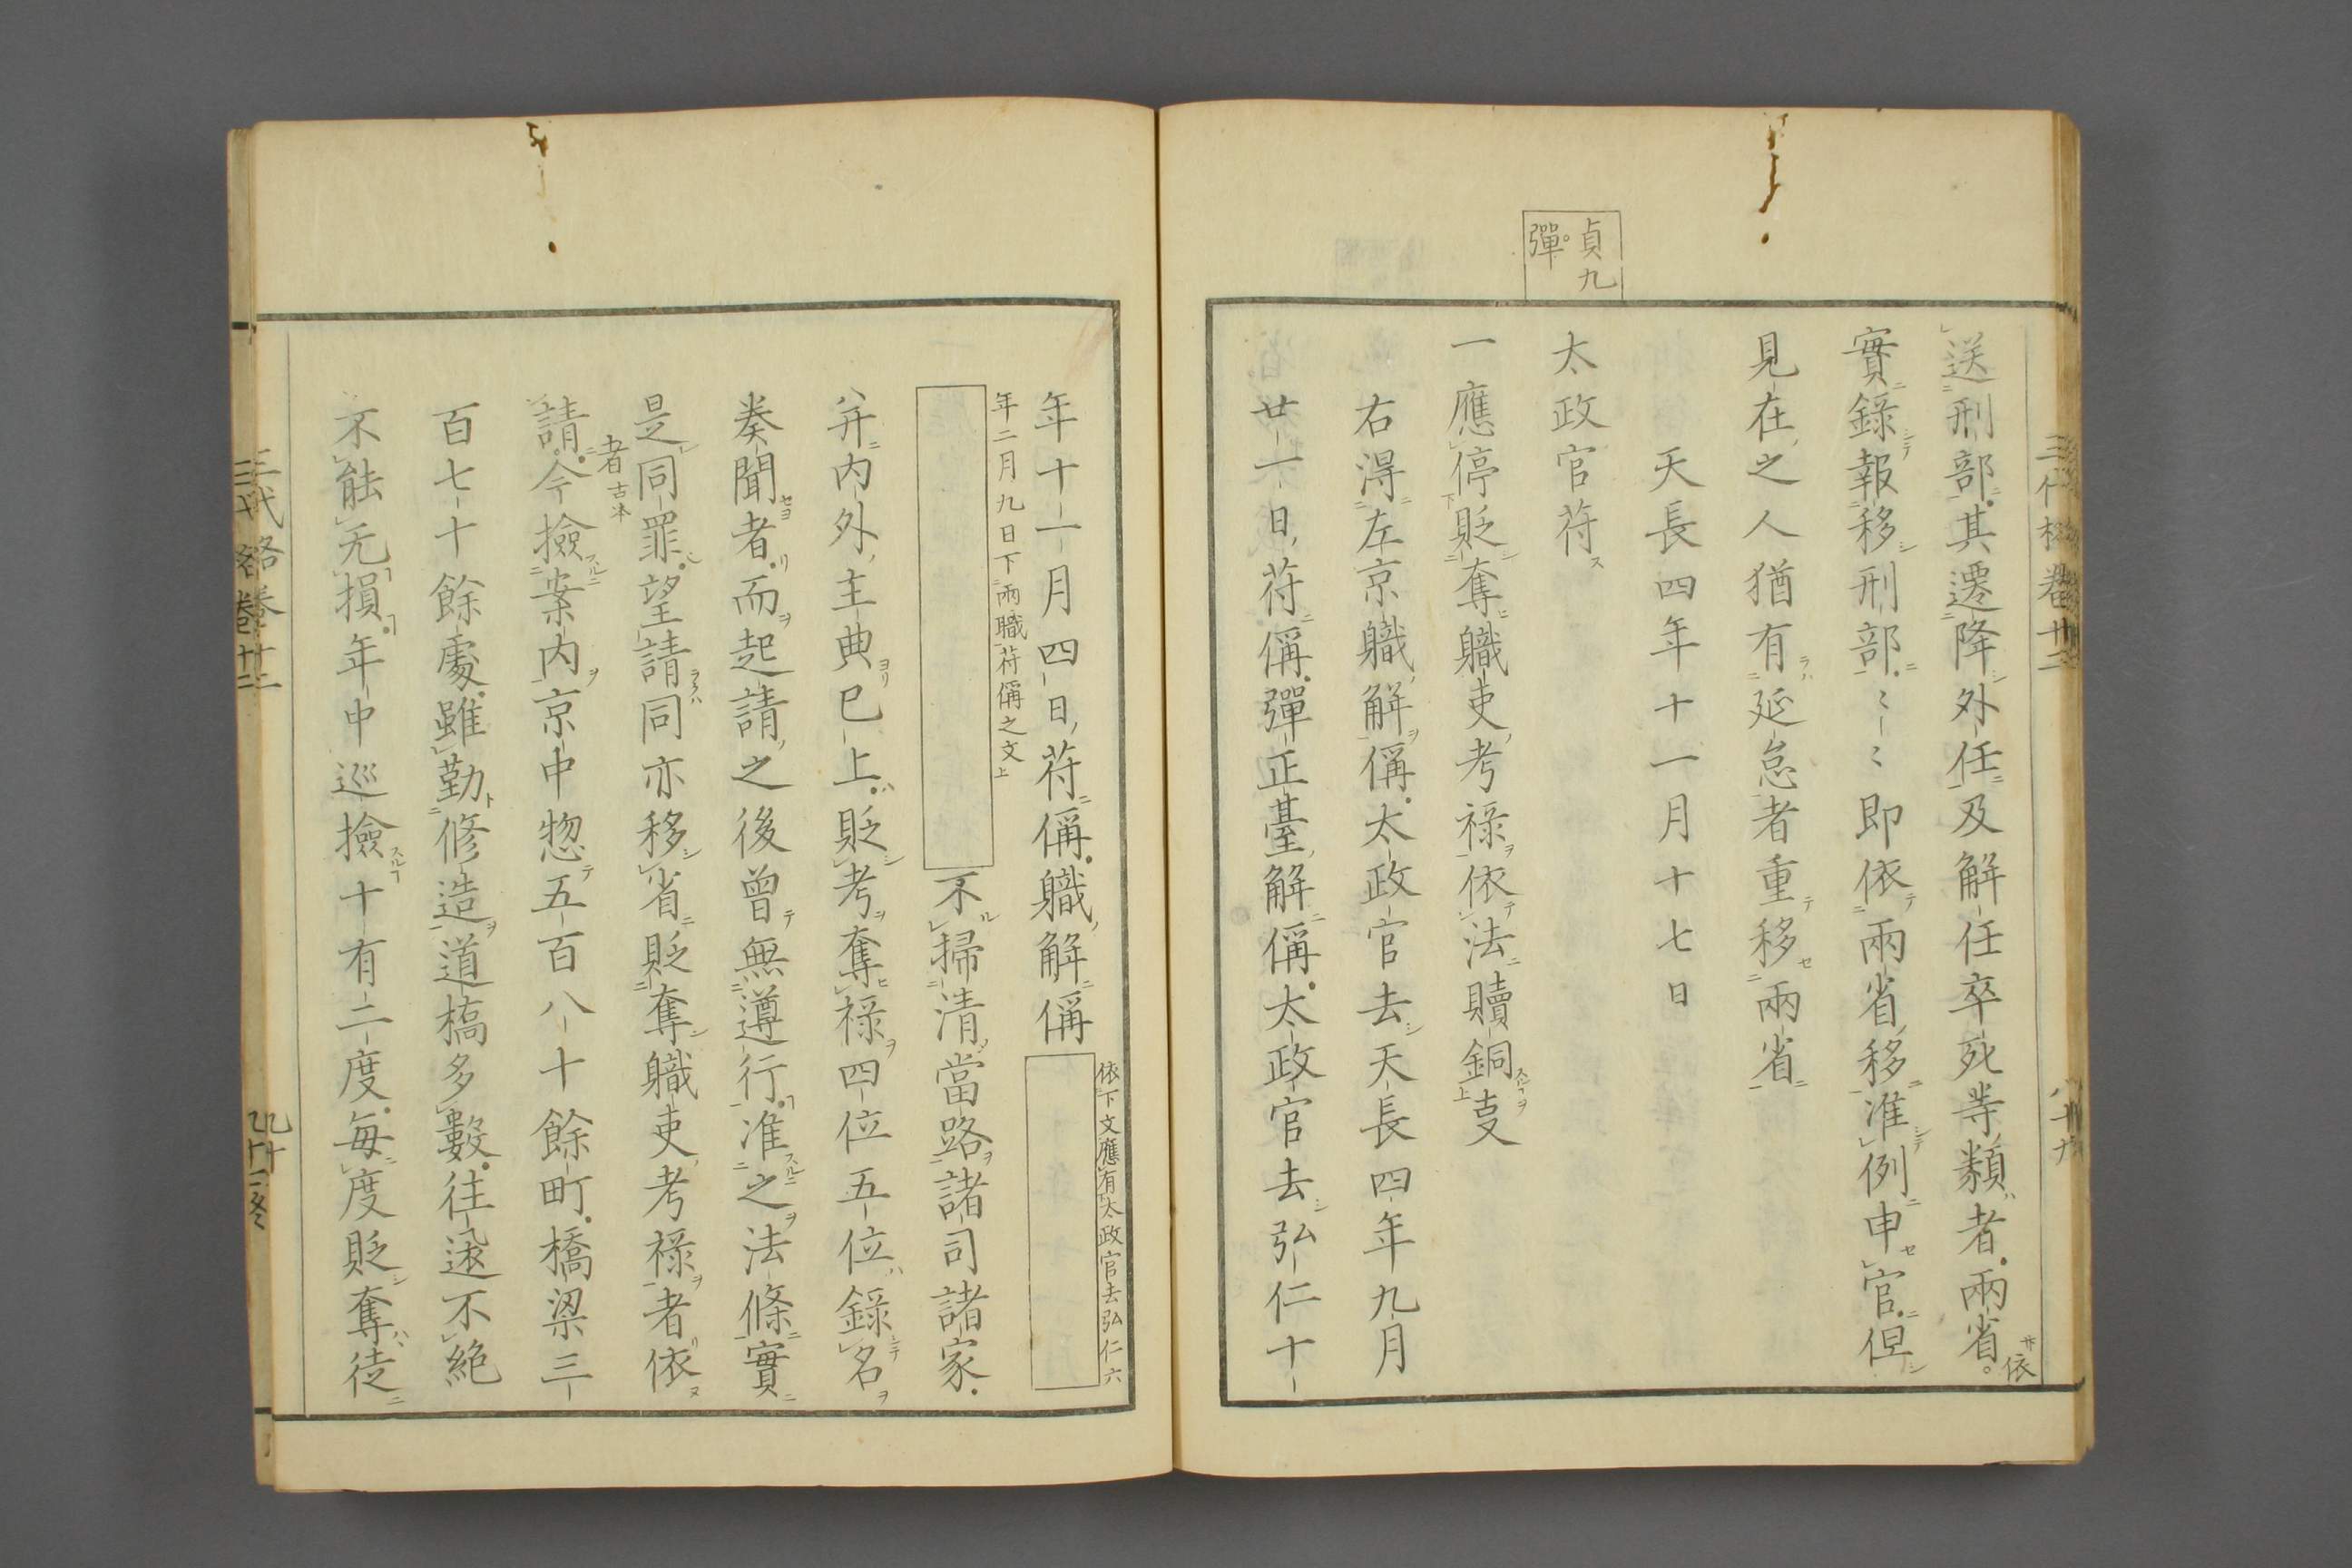 貞九
彈
送刑部其遷降外任及解任卒死等類者兩省依
實錄報移刑部〻〻即依兩省移准例申官但
見在之人猶有延怠者重移兩省
天長四年十一月十七日
太政官符
一應停貶奪職吏考祿依法贖銅支
右得左京職解偁太政官去天長四年九月
廿一日符偁彈正臺解偁太政官去弘仁十
年十一月四日符偁職解偁
依下文應有太政官去弘仁六
年二月九日下兩職符偁之文
不掃清當路諸司諸家
并內外主典已上貶考奪祿四位五位錄名
奏聞者而起請之後曾無遵行准之法條實
是同罪望請同亦移省貶奪職吏考祿者依
者古本
請今撿案內京中惣五百八十餘町橋梁三
百七十餘處雖勤修造道橋多數往還不絶
不能无損年中巡撿十有二度每度貶奪徒
三代格卷十二